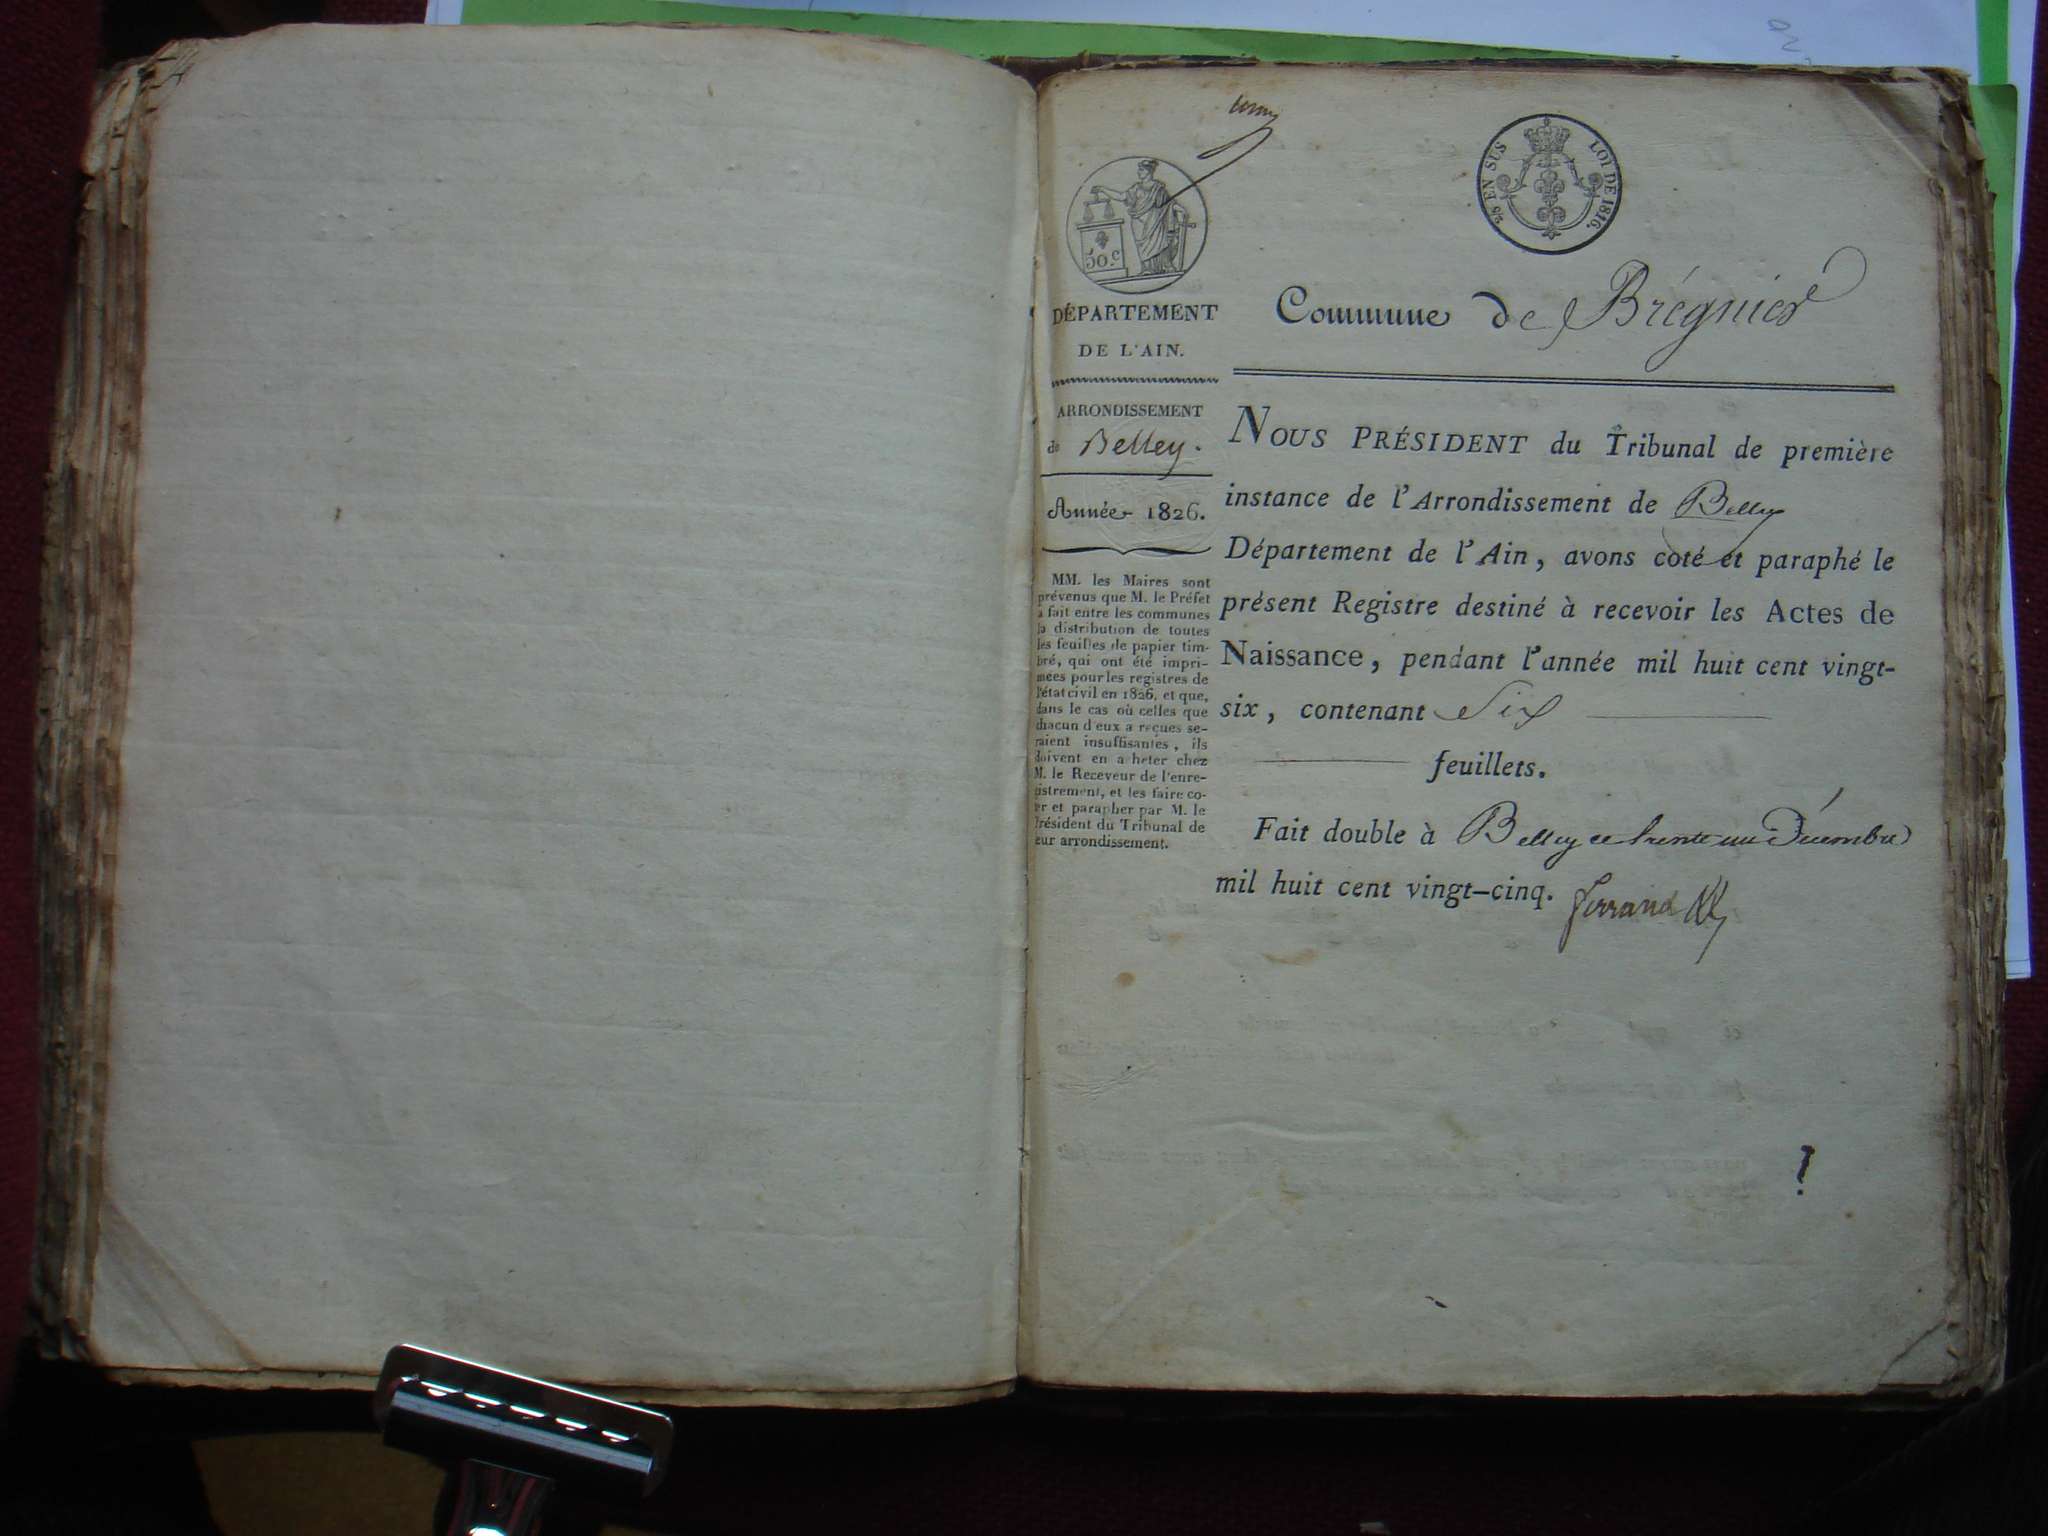 50 c.
2/10 EN SUS LOI DE 1816.
DÉPARTEMENT
DE L'AIN.
ARRONDISSEMENT
de Belley.
Année 1826.
MM. les Maires sont
prévenus que M. le Préfet
a fait entre les communes
la distribution de toutes
les feuilles de papier tim-
bré, qui ont été impri-
mées pour les registres de
l'état civil en 1826, et que,
dans le cas où celles que
chacun d'eux a reçues se-
raient insuffisantes, ils
doivent en a heter chez
M. le Receveur de l'enre-
gistrement, et les faire co-
ter et parapher par M. le
Président du Tribunal de
leur arrondissement.
Commune de Brégnier
NOUS PRÉSIDENT du Tribunal de première
instance de l'Arrondissement de Belley
Département de l'Ain, avons coté et paraphé le
présent Registre destiné à recevoir les Actes de
Naissance, pendant l'année mil huit cent vingt-
six, contenant Six
feuillets.
Fait double à Belley ce trente un Décembre
mil huit cent vingt-cinq. ferrand